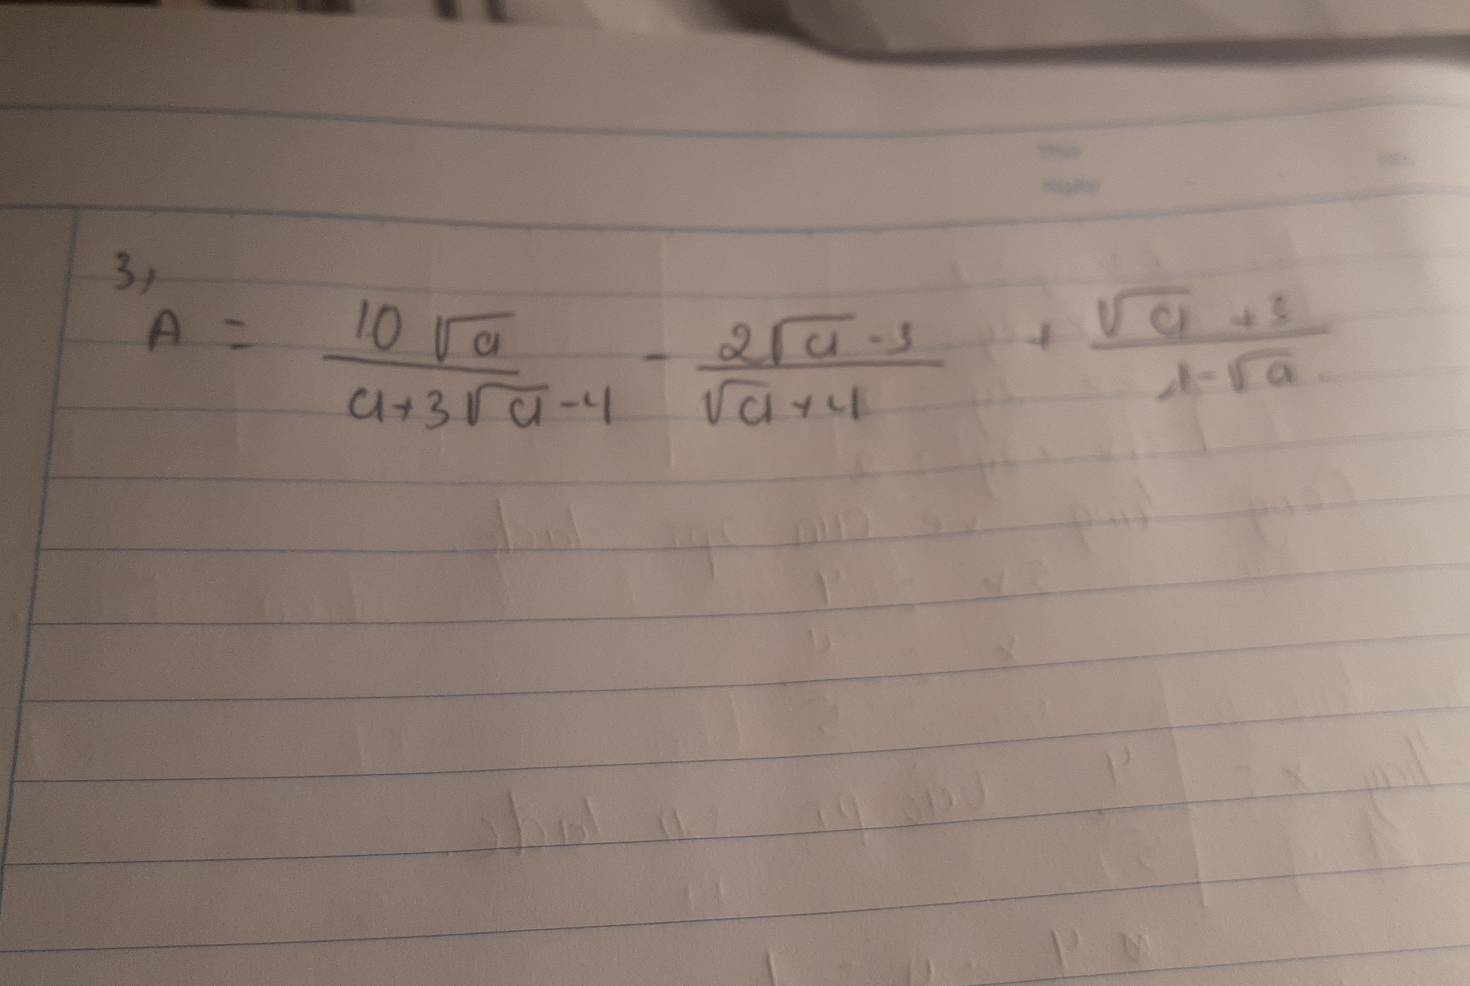 3,
A = \frac{10\sqrt{a}}{a+3\sqrt{a}-4} - \frac{2\sqrt{a}-3}{\sqrt{a}+4} + \frac{\sqrt{a}+3}{1-\sqrt{a}}